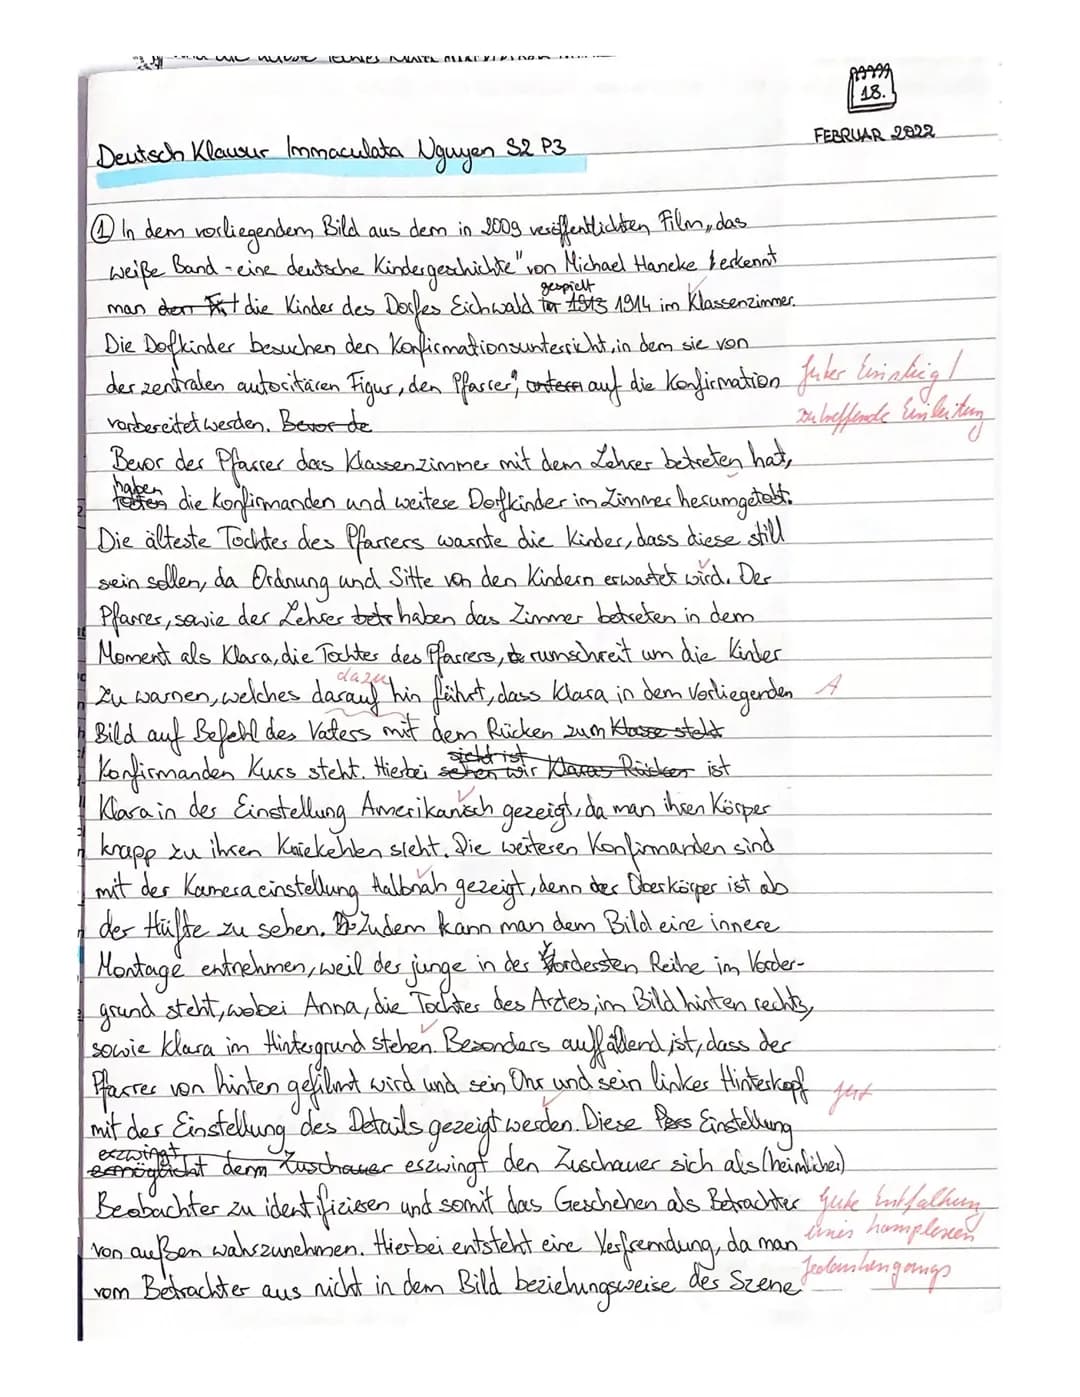 18.
FEBRUAR 2022
Deutsch Klausur Immaculata Nguyen S2 P3
① In dem vorliegendem Bild aus dem in 2009 veröffentlichten Film „das
weiße Band - eine deutsche Kindergeschichte" von Michael Haneke erkennt
gespielt
man die Kinder des Dorfes Eichwald 1914 im Klassenzimmer.
Die Dofkinder besuchen den Konfirmationsunterricht, in dem sie von
der zentralen autoritären Figur, „den Pfarrer", auf die Konfirmation
guter Einstieg!
vorbereitet werden. Bevor de
zutreffende Einleitung
Bevor der Pfarrer das Klassenzimmer mit dem Lehrer betreten hat,
haben
die Konfirmanden und weitere Dorfkinder im Zimmer herumgetobt.
Die älteste Tochter des Pfarrers warnte die Kinder, dass diese still
sein sollen, da Ordnung und Sitte von den Kindern erwartet wird. Der
Pfarrer, sowie der Lehrer betr haben das Zimmer betreten in dem
Moment als Klara, die Tochter des Pfarrers, rumschreit um die Kinder
dazu
zu warnen, welches darauf hin führt, dass Klara in dem Vorliegenden A
Bild auf Befehl des Vaters mit dem Rücken zum Klasse steht
Konfirmanden Kurs steht. Hierbei sehen wir Klaras Rücken ist
sieht ist
Klara in der Einstellung Amerikanisch gezeigt, da man ihren Körper
krapp zu ihren Kniekehlen sieht. Die weiteren Konfirmanden sind
mit der Kameraeinstellung Halbnah gezeigt, denn der Oberkörper ist ab
der Hüfte zu sehen. Zudem kann man dem Bild eine innere
Montage entnehmen, weil der junge in der Vordersten Reihe im Vorder-
grund steht, wobei Anna, die Tochter des Arztes, im Bild hinten rechts,
sowie Klara im Hintergrund stehen. Besonders auffallend ist, dass der
Pfarrer von hinten gefilmt wird und sein Ohr und sein linker Hinterkopf
gut
mit der Einstellung des Details gezeigt werden. Diese Pers Einstellung
erzwingt
ermöglicht denn Zuschauer erzwingt den Zuschauer sich als (heimlicher)
Beobachter zu identifizieren und somit das Geschehen als Betrachter
gute Entfaltung
eines komplexen
von außen wahrzunehmen. Hierbei entsteht eine Verfremdung, da man
Gedankengangs
vom Betrachter aus nicht in dem Bild beziehungsweise der Szene